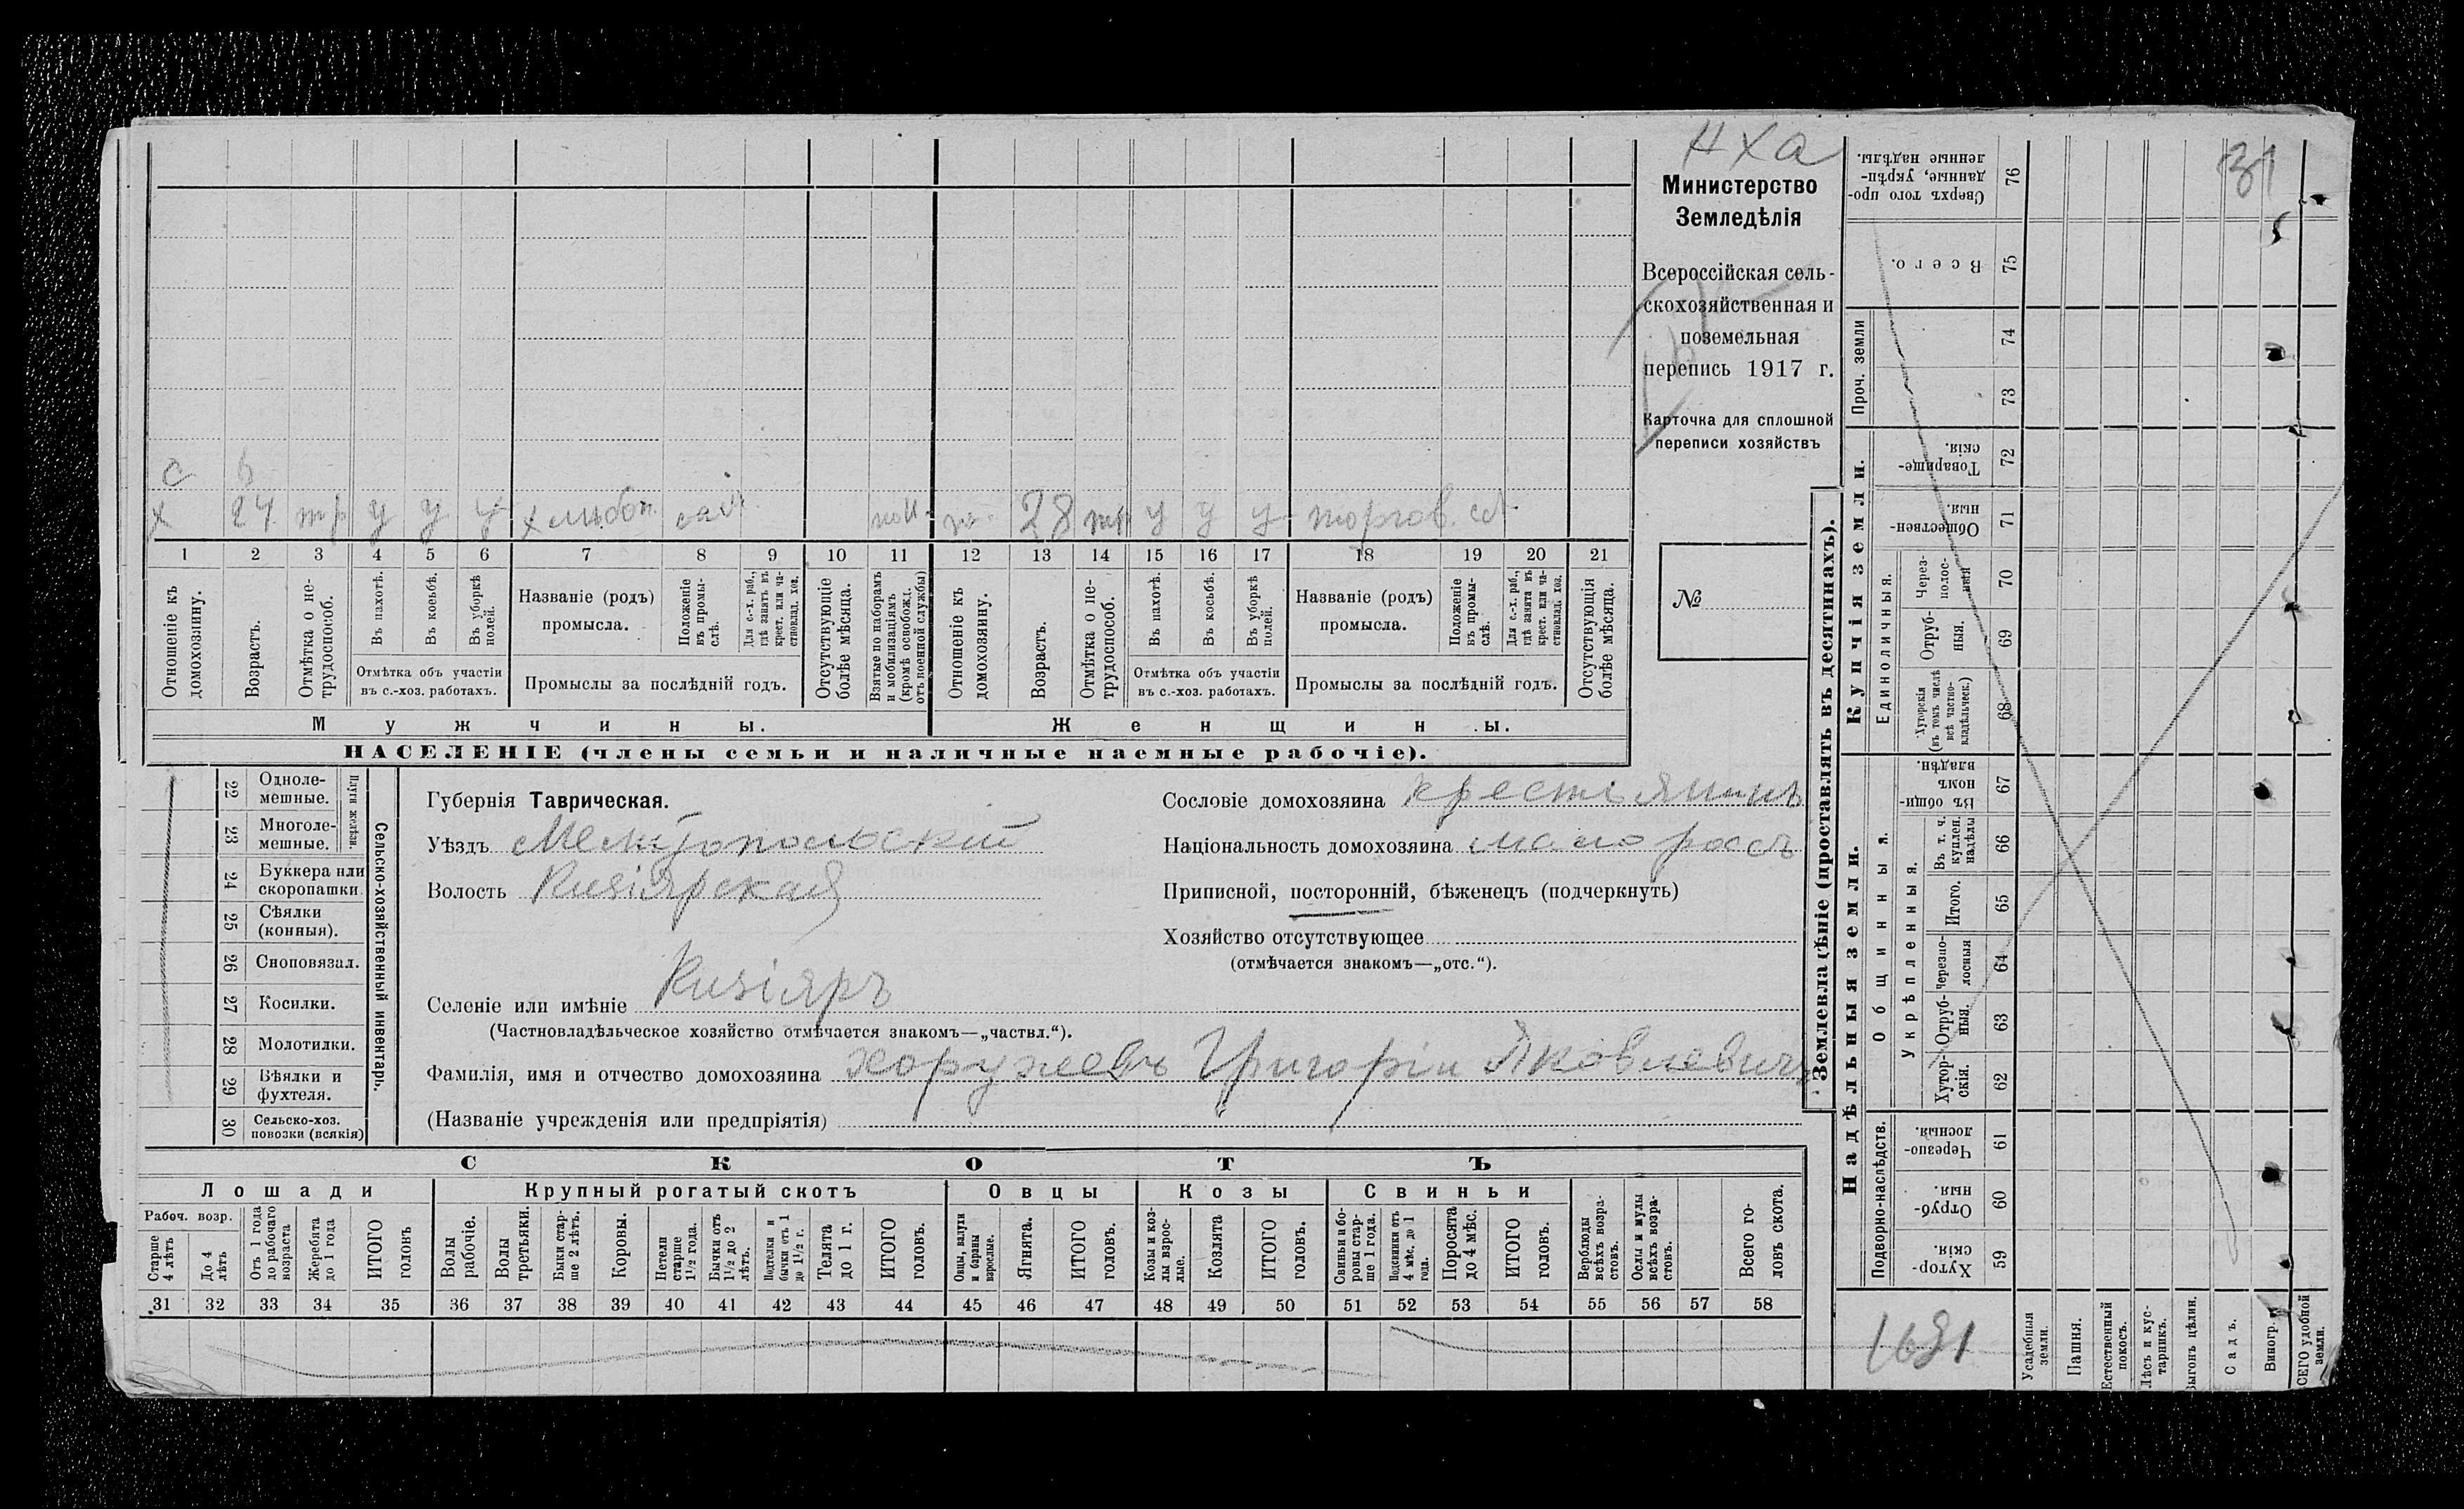 Н Х а
31
Министерство
Земледѣлія
Всероссійская сель-
скохозяйственная и
поземельная
перепись 1917 г.
Карточка для сплошной
переписи хозяйствъ
№
с
х 24 тр у у у хлѣбоп. ж. 28 тр у у у торгов.
1 2 3 4 5 6 7 8 9 10 11 12 13 14 15 16 17 18 19 20 21
Отношеніе къ домохозяину.
Возрастъ.
Отмѣтка о не-трудоспособ.
Въ пахотѣ.
Въ косьбѣ.
Въ уборкѣ полей.
Отмѣтка объ участіи
въ с.-хоз. работахъ.
Названіе (родъ)
промысла.
Положеніе въ промы-слѣ.
Для с.-х. раб., гдѣ занятъ въ крест. или ча-стновлад. хоз.
Промыслы за послѣдній годъ.
Отсутствующіе болѣе мѣсяца.
Взятые по наборамъ и мобилизаціямъ (кромѣ освобожд. отъ военной службы)
Отношеніе къ домохозяину.
Возрастъ.
Отмѣтка о не-трудоспособ.
Въ пахотѣ.
Въ косьбѣ.
Въ уборкѣ полей.
Отмѣтка объ участіи
въ с.-хоз. работахъ.
Названіе (родъ)
промысла.
Положеніе въ промы-слѣ.
Для с.-х. раб., гдѣ занята въ крест. или ча-стновлад. хоз.
Промыслы за послѣдній годъ.
Отсутствующія болѣе мѣсяца.
Мужчины.
Женщины.
НАСЕЛЕНІЕ (члены семьи и наличные наемные рабочіе).
22 Одноле-мешные.
23 Многоле-мешные.
Плуги желѣзн.
24 Буккера или скоропашки
25 Сѣялки (конныя).
26 Сноповязал.
27 Косилки.
28 Молотилки.
29 Вѣялки и фухтеля.
30 Сельско-хоз. повозки (всякія)
Сельско-хозяйственный инвентарь.
Губернія Таврическая.
Уѣздъ Мелитопольский
Волость Кизіярская
Селеніе или имѣніе Кизіяръ
(Частновладѣльческое хозяйство отмѣчается знакомъ—„частвл.“).
Фамилія, имя и отчество домохозяина Хоружевъ Григоріи Яковлевичъ
(Названіе учрежденія или предпріятія)
Сословіе домохозяина крестіянинъ
Національность домохозяина малороссъ
Приписной, посторонній, бѣженецъ (подчеркнуть)
Хозяйство отсутствующее
(отмѣчается знакомъ—„отс.“).
СКОТЪ
Лошади
Крупный рогатый скотъ
Овцы
Козы
Свиньи
Рабоч. возр.
Старше 4 лѣтъ
До 4 лѣтъ
Отъ 1 года до рабочаго возраста
Жеребята до 1 года
ИТОГО головъ
Волы рабочіе.
Волы третьяки.
Быки стар-ше 2 лѣтъ.
Коровы.
Нетели старше 1½ года.
Бычки отъ 1½ до 2 лѣтъ.
Подтелки и бычки отъ 1 до 1½ г.
Телята до 1 г.
ИТОГО головъ.
Овцы, валухи и бараны взрослые.
Ягнята.
ИТОГО головъ.
Козы и коз-лы взрос-лые.
Козлята
ИТОГО головъ.
Свиньи и бо-ровы стар-ше 1 года.
Подсвинки отъ 4 мѣс. до 1 года.
Поросята до 4 мѣс.
ИТОГО головъ.
Верблюды всѣхъ возра-стовъ.
Ослы и мулы всѣхъ возра-стовъ.
Всего го-ловъ скота.
31 32 33 34 35 36 37 38 39 40 41 42 43 44 45 46 47 48 49 50 51 52 53 54 55 56 57 58
Землевладѣніе (проставлять въ десятинахъ).
Купчія земли.
Надѣльныя земли.
Сверхъ того про-данные, укрѣп-ленные надѣлы. 76
Всего. 75
Проч. земли
74
73
Товарище-скія. 72
Обществен-ныя. 71
Единоличныя.
Через-полос-ныя 70
Отруб-ныя. 69
Хуторскія (въ томъ числѣ всѣ частно-владѣльческ.) 68
Общинныя.
Въ общин-номъ владѣн. 67
Укрѣпленныя.
Въ т. ч. куплен. надѣлы 66
Итого. 65
Черезпо-лосныя 64
Отруб-ныя. 63
Хутор-скія. 62
Подворно-наслѣдств.
Черезпо-лосныя. 61
Отруб-ныя. 60
Хутор-скія. 59
1691
Усадебныя земли.
Пашня.
Естественный покосъ.
Лѣсъ и кус-тарникъ.
Выгонъ цѣлин.
Садъ.
Виногр.
СЕГО удобной земли.